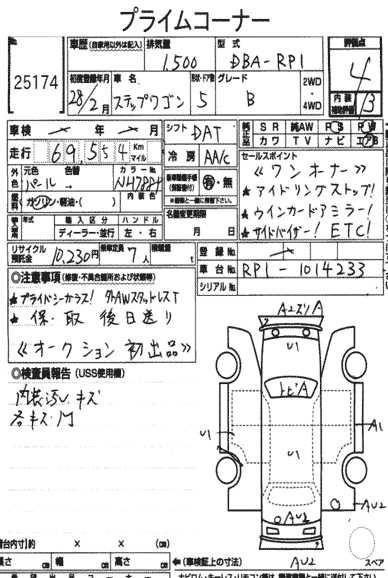 プライムコーナー
25174
車歴 (自家用以外は記入)
排気量
1,500
型式
DBA-RP1
評価点
4
初度登録年月
28/2月
車名
ステップワゴン
形状・ドア数
5
グレード
B
2WD
4WD
内装補助評価
B
車検
年
月
走行
69,554
Km
マイル
シフト
DAT
冷房
AAC
純正
SR
純AW
PS
PW
カワ
TV
ナビ
エアB
外色
元色
色替
パール→
カラーNo
NH788P
内装色
燃料
ガソリン・軽油・(
)
有・無
名義変更期限
月
日
セールスポイント
《ワンオーナー》
★アイドリングストップ!
★ウインカードアミラー!
★サイドバイザー! ETC!
年式
輸入区分
ハンドル
ディーラー・並行
左・右
リサイクル預託金
10,230円
乗車定員
7人
積載量
t
登録No.
車台No.
RP1-1014233
シリアルNo.
◎注意事項 (修復・不具合箇所および状態等)
★プライバシーガラス! 外AWスタットレスT
★保・取 後日送り
《オークション初出品》
◎検査員報告 (USS使用欄)
内装汚レキズ
各キズ凹
A2スリA
U1
トビA
U1
U1
A1
AU2
AU2
AU2
荷台内寸)約
×
×
cm
長さ
cm
幅
cm
高さ
cm
←(車検証上の寸法)
スペア